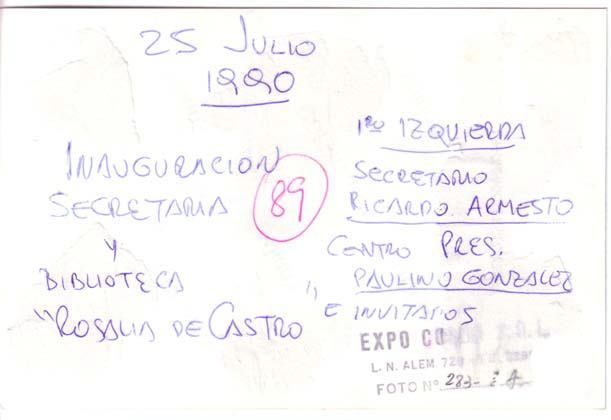 25 JULIO
1990
INAUGURACION
SECRETARIA
Y
BIBLIOTECA
"ROSALIA DE CASTRO"
89
1ro IZQUIERDA
SECRETARIO
RICARDO ARMESTO
CENTRO PRES.
PAULINO GONZALEZ
E INVITADOS
EXPO CO
L. N. ALEM
FOTO Nº 283-